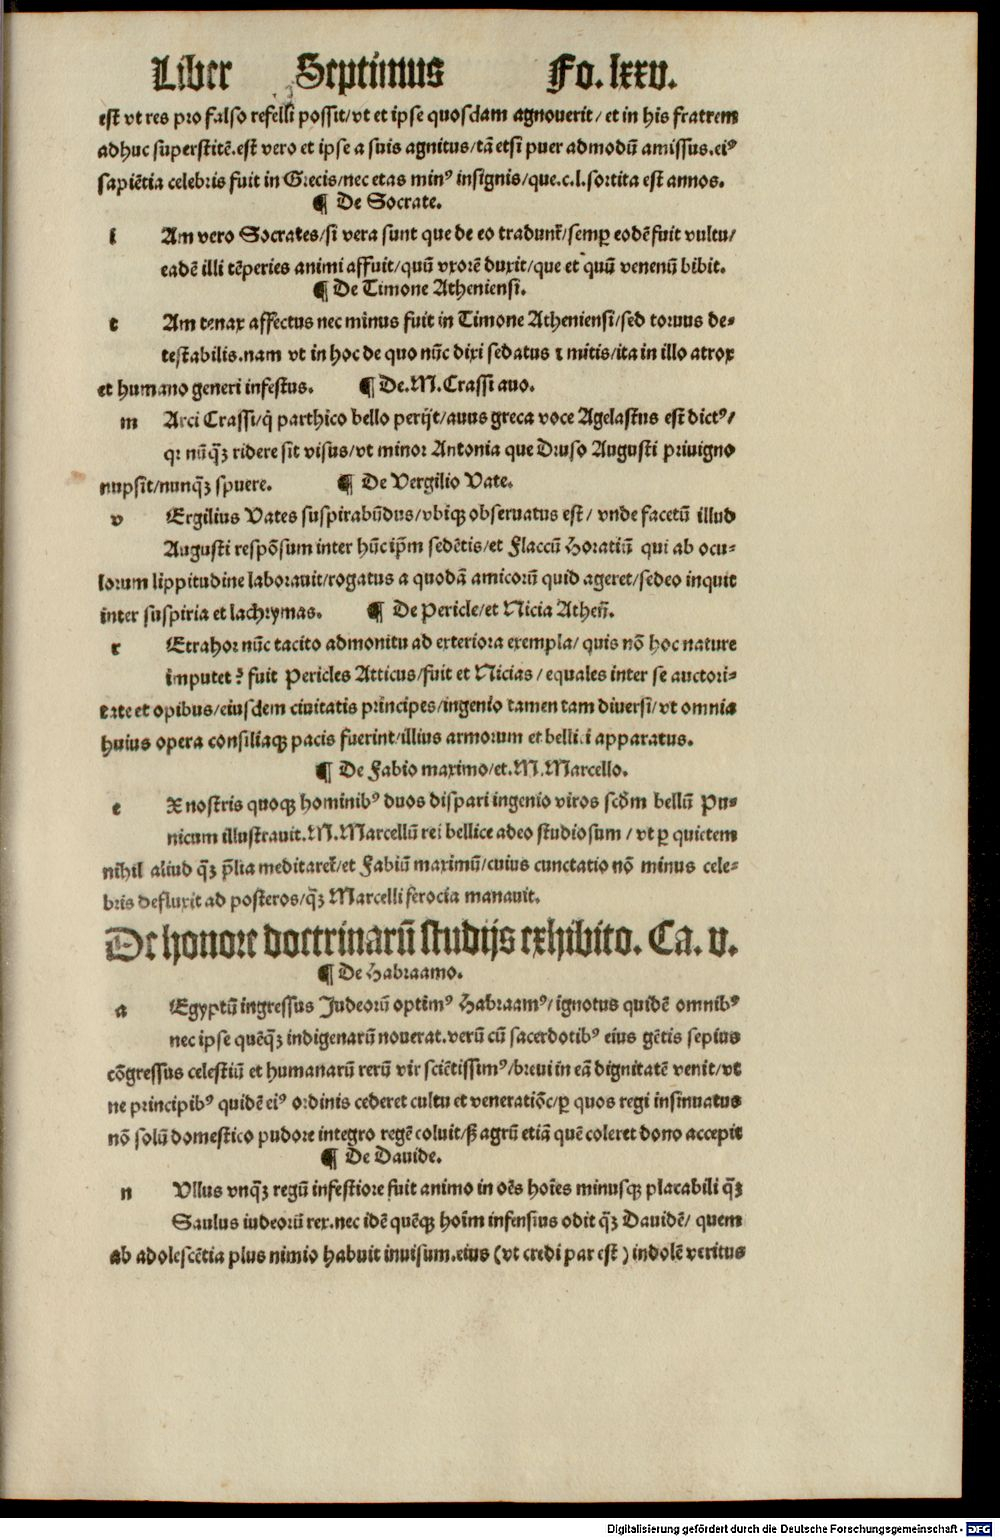 Liber Septimus Fo. lxxv.
est vt res pro falso refelli possit/vt et ipse quosdam agnouerit/ et in his fratrem
adhuc superstitē.est vero et ipse a suis agnitus/tā etsi puer admodū amissus.eiꝰ
sapiētia celebris fuit in Grecis/nec etas minꝰ insignis/que.c.l.sortita est annos.
¶ De Socrate.
i Am vero Socrates/si vera sunt que de eo tradunt̄/semꝑ eodē fuit vultu/
eadē illi tēperies animi affuit/quū vxorē duxit/que et quū venenū bibit.
¶ De Timone Atheniensi.
t Am tenax affectus nec minus fuit in Timone Atheniensi/sed toruus de-
testabilis.nam vt in hoc de quo nūc dixi sedatus ⁊ mitis/ita in illo atrox
et humano generi infestus. ¶ De.M.Crassi auo.
m Arci Crassi/q̄ parthico bello perijt/auus greca voce Agelastus est dictꝰ/
qꝛ nūq̄ꝫ ridere sit visus/vt minor Antonia que Druso Augusti priuigno
nupsit/nunq̄ꝫ spuere. ¶ De Vergilio Vate.
v Ergilius Vates suspirabūdus/vbiqꝫ obseruatus est/ vnde facetū illud
Augusti respōsum inter hūc ip̄m sedētis/et Flaccū Horatiū qui ab ocu-
lorum lippitudine laborauit/rogatus a quodā amicorū quid ageret/sedeo inquit
inter suspiria et lachrymas. ¶ De Pericle/et Nicia Atheñ.
r Etrahor nūc tacito admonitu ad exteriora exempla/ quis nō hoc nature
imputet? fuit Pericles Atticus/fuit et Nicias/ equales inter se auctori-
tate et opibus/eiusdem ciuitatis principes/ingenio tamen tam diuersi/vt omnia
huius opera consiliaqꝫ pacis fuerint/illius armorum et bellici apparatus.
¶ De Fabio maximo/et.M.Marcello.
e X nostris quoqꝫ hominibꝰ duos dispari ingenio viros scd̄m bellū Pu-
nicum illustrauit.M.Marcellū rei bellice adeo studiosum / vt ꝑ quietem
nihil aliud q̄ꝫ p̄lia meditaret̄/et Fabiū maximū/cuius cunctatio nō minus cele-
bris defluxit ad posteros/q̄ꝫ Marcelli ferocia manauit.
De honore doctrinarū studijs exhibito. Ca. v.
¶ De Habraamo.
a Egyptū ingressus Judeorū optimꝰ Habraamꝰ/ignotus quidē omnibꝰ
nec ipse quēq̄ꝫ indigenarū nouerat.verū cū sacerdotibꝰ eius gētis sepius
cōgressus celestiū et humanarū rerū vir sciētissimꝰ/breui in eā dignitatē venit/vt
ne principibꝰ quidē eiꝰ ordinis cederet cultu et veneratiōe/ꝑ quos regi insinuatus
nō solū domestico pudore integro regē coluit/ß agrū etiā quē coleret dono accepit
¶ De Dauide.
n Vllus vnq̄ꝫ regū infestiore fuit animo in oēs hoīes minusqꝫ placabili q̄ꝫ
Saulus iudeorū rex.nec idē quēqꝫ hoīm infensius odit q̄ꝫ Dauidē/ quem
ab adolescētia plus nimio habuit inuisum.eius (vt credi par est) indolē veritus
Digitalisierung gefördert durch die Deutsche Forschungsgemeinschaft - DFG